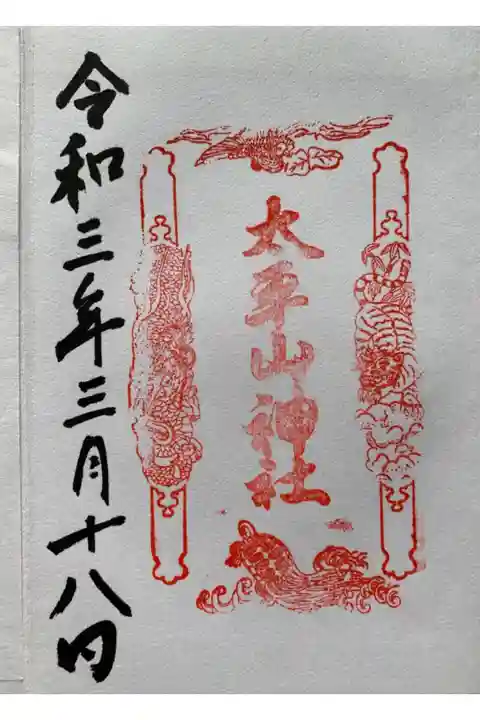 太平山神社
令和三年三月十八日